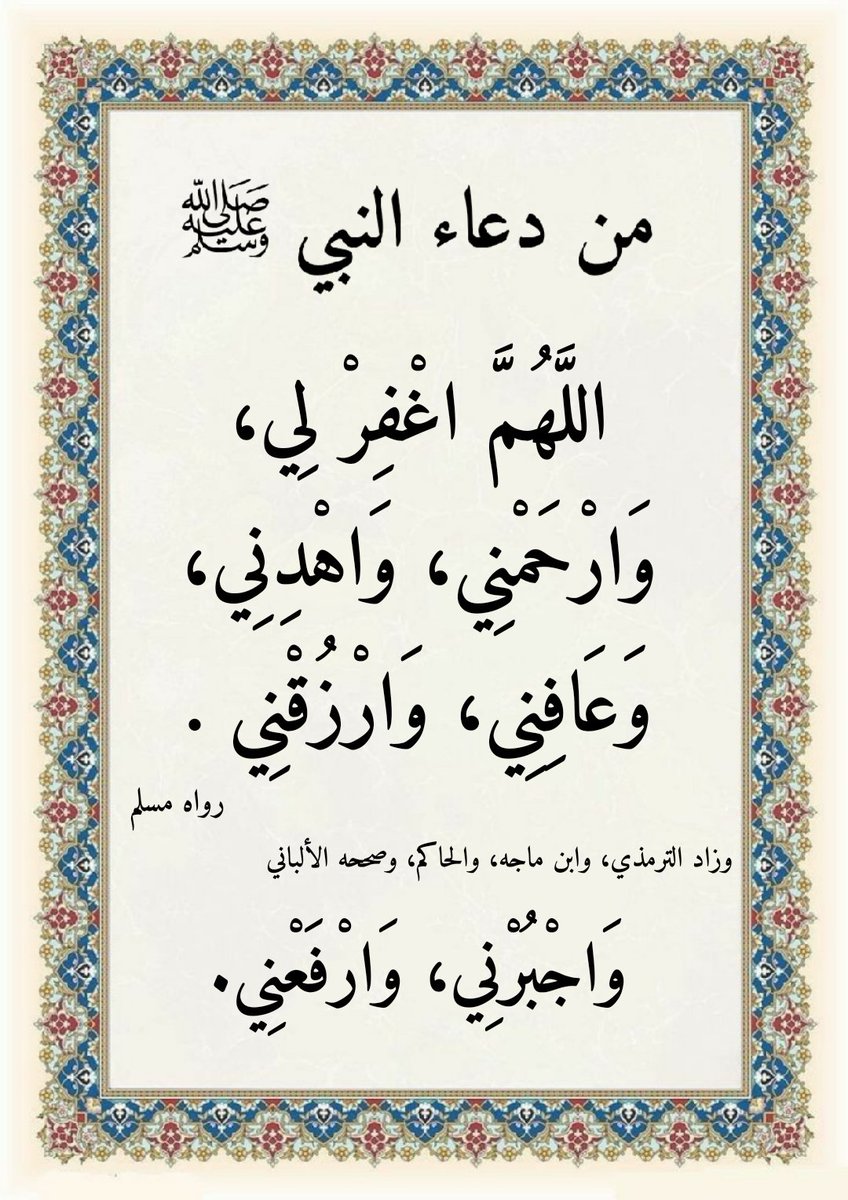 من دعاء النبي ﷺ
اللَّهُمَّ اغْفِرْ لِي،
وَارْحَمْنِي، وَاهْدِنِي،
وَعَافِنِي، وَارْزُقْنِي .
رواه مسلم
وزاد الترمذي، وابن ماجه، والحاكم، وصححه الألباني
وَاجْبُرْنِي، وَارْفَعْنِي.